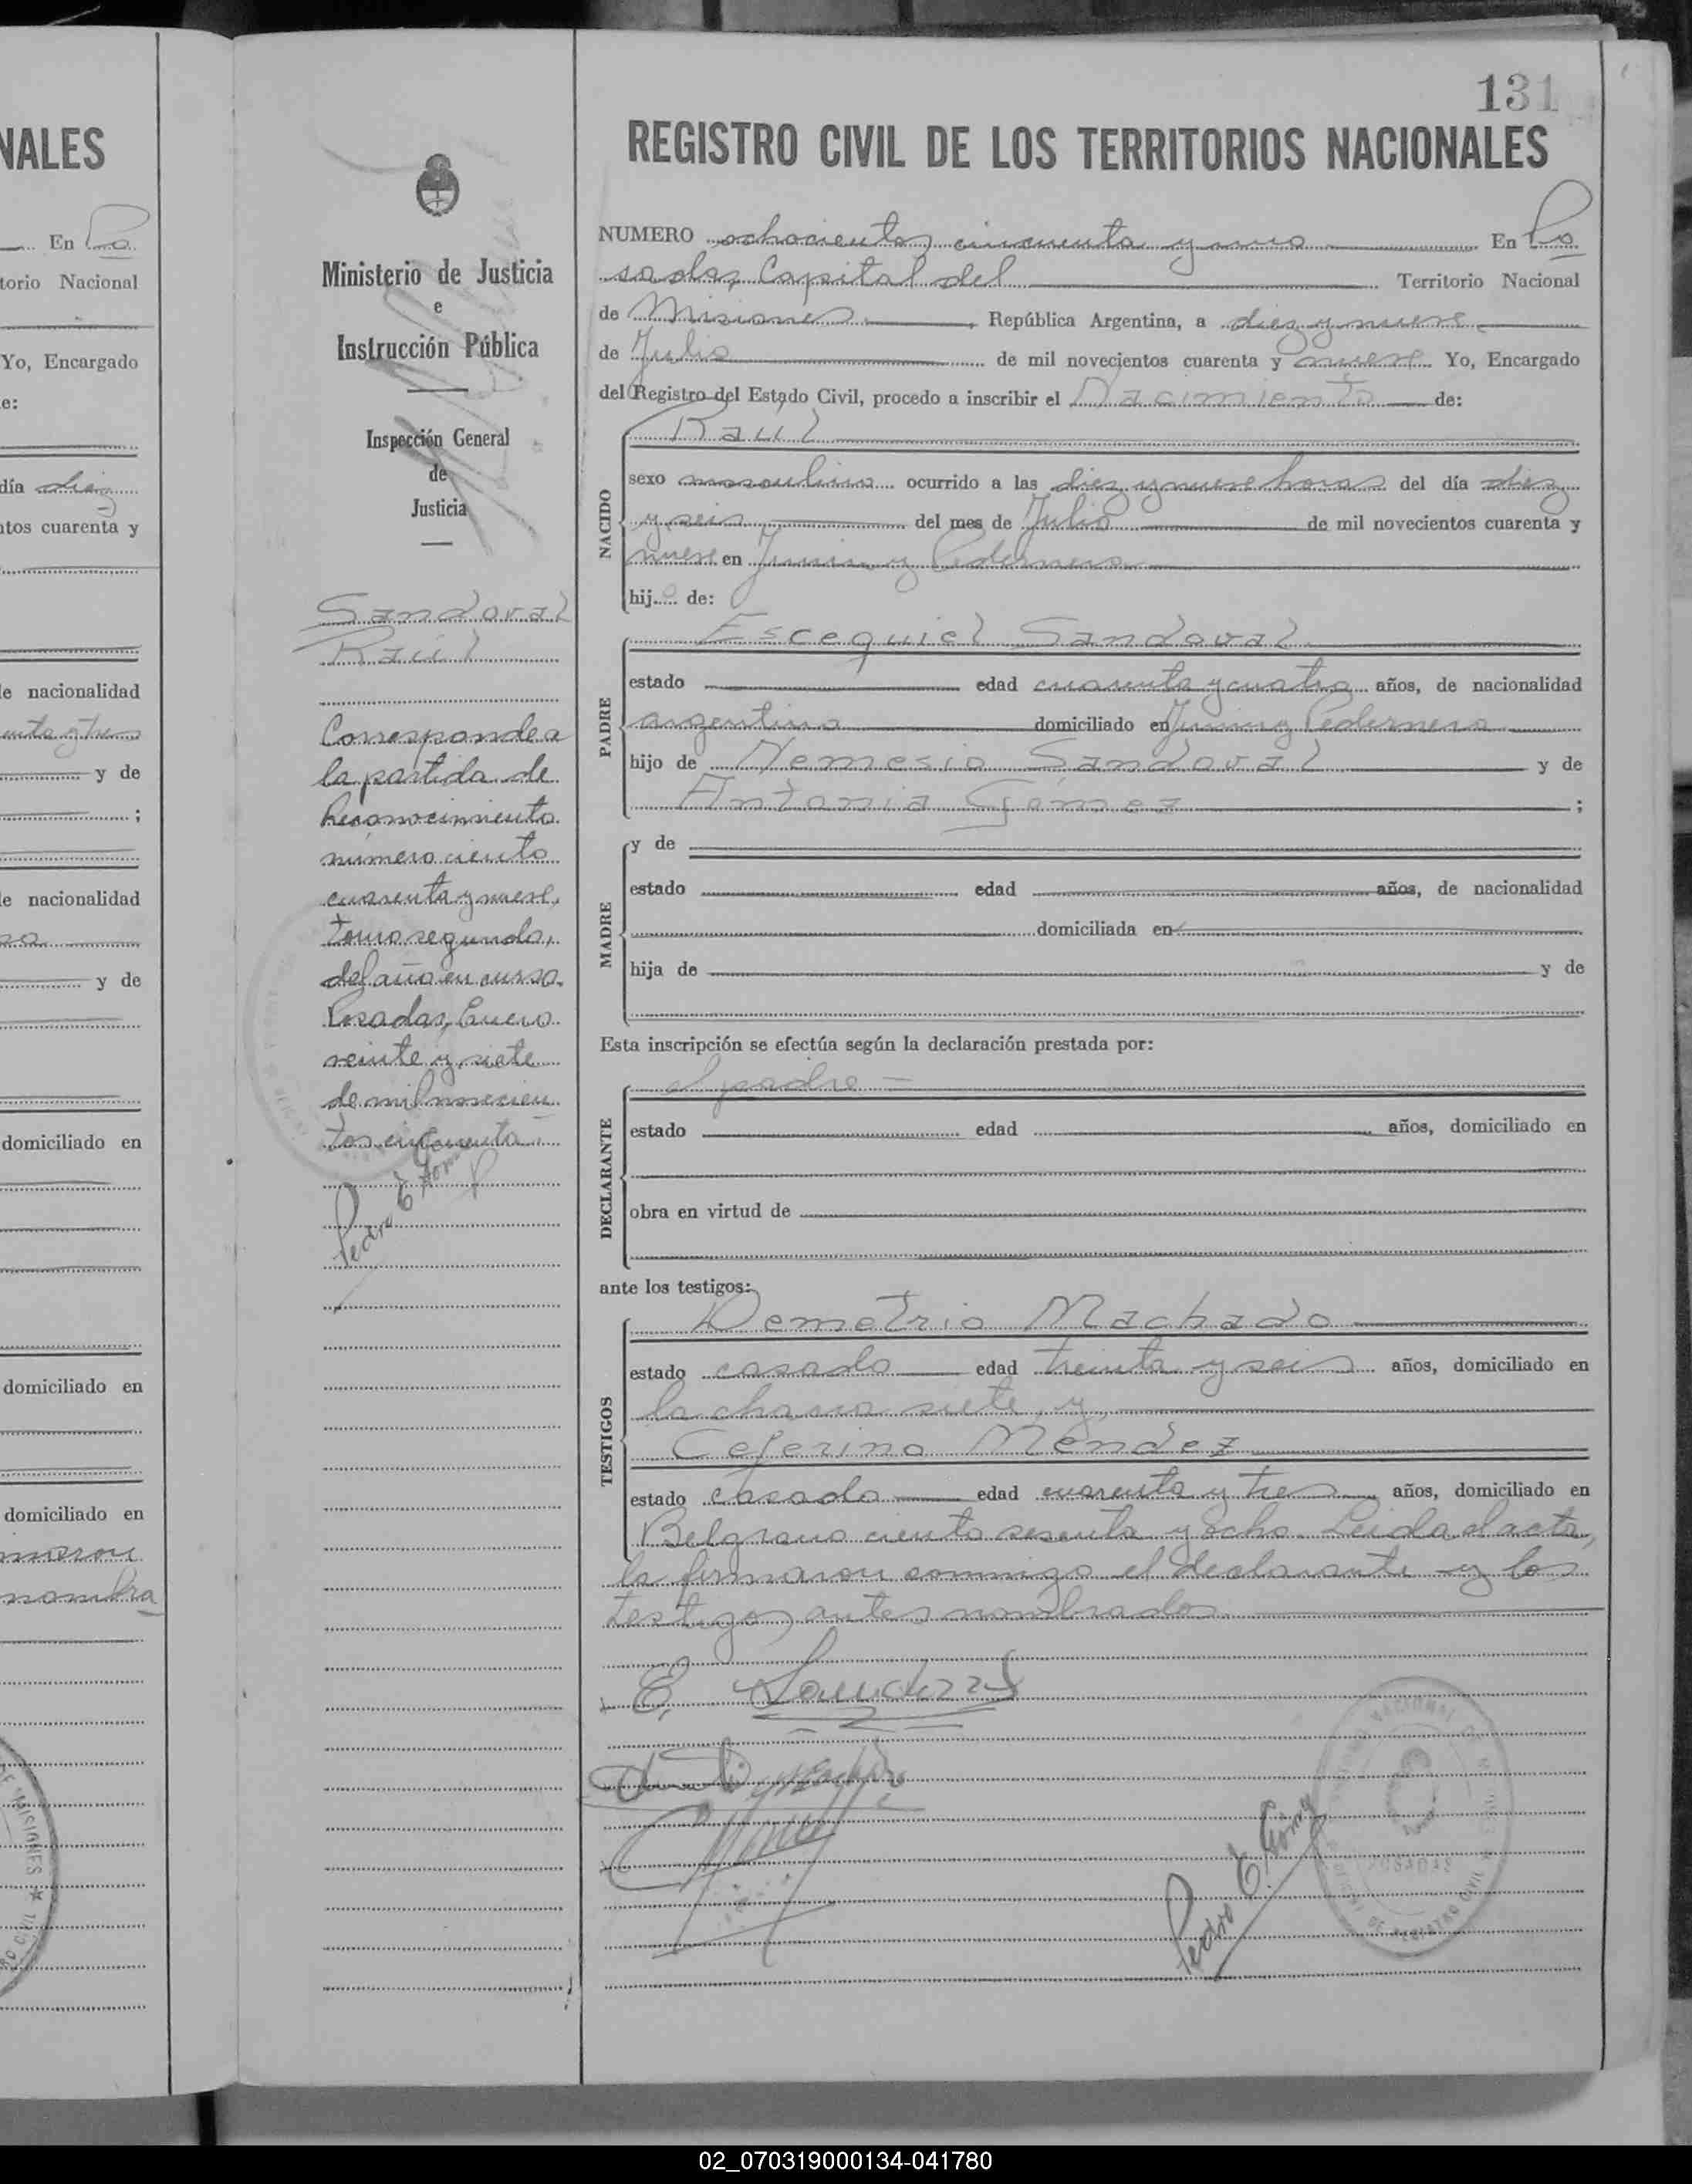 NALES
En Po
torio Nacional
Yo, Encargado
e:
día diez
ntos cuarenta y
le nacionalidad
y de
;
le nacionalidad
y de
domiciliado en
domiciliado en
domiciliado en
nombra
Ministerio de Justicia
e
Instrucción Pública
Inspección General
de
Justicia
Sandoval
Raúl
Corresponde a
la partida de
Reconocimiento
número ciento
cuarenta y nueve,
tomo segundo,
del año en curso.
Posadas, Enero
veinte y siete
de mil novecien
tos cincuenta
Pedro E
131
REGISTRO CIVIL DE LOS TERRITORIOS NACIONALES
NUMERO ochocientos cincuenta y uno En Po
sadas, Capital del Territorio Nacional
de Misiones, República Argentina, a diez y nueve
de Julio de mil novecientos cuarenta y nueve Yo, Encargado
del Registro del Estado Civil, procedo a inscribir el Nacimiento de:
Raúl
NACIDO
sexo masculino ocurrido a las diez y nueve horas del día diez
y seis del mes de Julio de mil novecientos cuarenta y
nueve en Junin y Pedernera
hijo de:
PADRE
Escequiel Sandoval
estado edad cuarenta y cuatro años, de nacionalidad
argentina domiciliado en Junin y Pedernera
hijo de Nemesio Sandoval y de
Antonia Gómez ;
MADRE
y de
estado edad años, de nacionalidad
domiciliada en
hija de y de
Esta inscripción se efectúa según la declaración prestada por:
DECLARANTE
el padre
estado edad años, domiciliado en
obra en virtud de
ante los testigos:
TESTIGOS
Demetrio Machado
estado casado edad treinta y seis años, domiciliado en
la chacra siete, y,
Ceferino Méndez
estado casado edad cuarenta y tres años, domiciliado en
Belgrano ciento sesenta y ocho. Leida el acta,
la firmaron conmigo el declarante y los
testigos antes nombrados.
E. Sandoval
Pedro E. Gómez
02_070319000134-041780